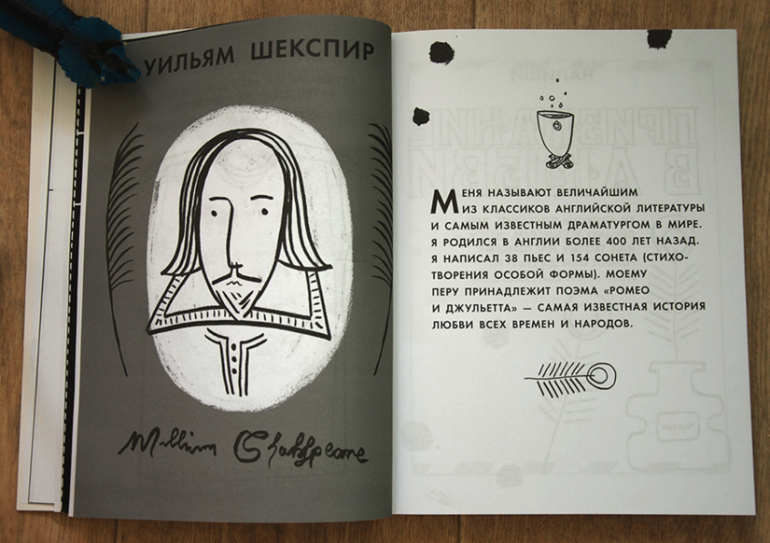 УИЛЬЯМ ШЕКСПИР
William Shakspeare
МЕНЯ НАЗЫВАЮТ ВЕЛИЧАЙШИМ
ИЗ КЛАССИКОВ АНГЛИЙСКОЙ ЛИТЕРАТУРЫ
И САМЫМ ИЗВЕСТНЫМ ДРАМАТУРГОМ В МИРЕ.
Я РОДИЛСЯ В АНГЛИИ БОЛЕЕ 400 ЛЕТ НАЗАД.
Я НАПИСАЛ 38 ПЬЕС И 154 СОНЕТА (СТИХО-
ТВОРЕНИЯ ОСОБОЙ ФОРМЫ). МОЕМУ
ПЕРУ ПРИНАДЛЕЖИТ ПОЭМА «РОМЕО
И ДЖУЛЬЕТТА» — САМАЯ ИЗВЕСТНАЯ ИСТОРИЯ
ЛЮБВИ ВСЕХ ВРЕМЕН И НАРОДОВ.